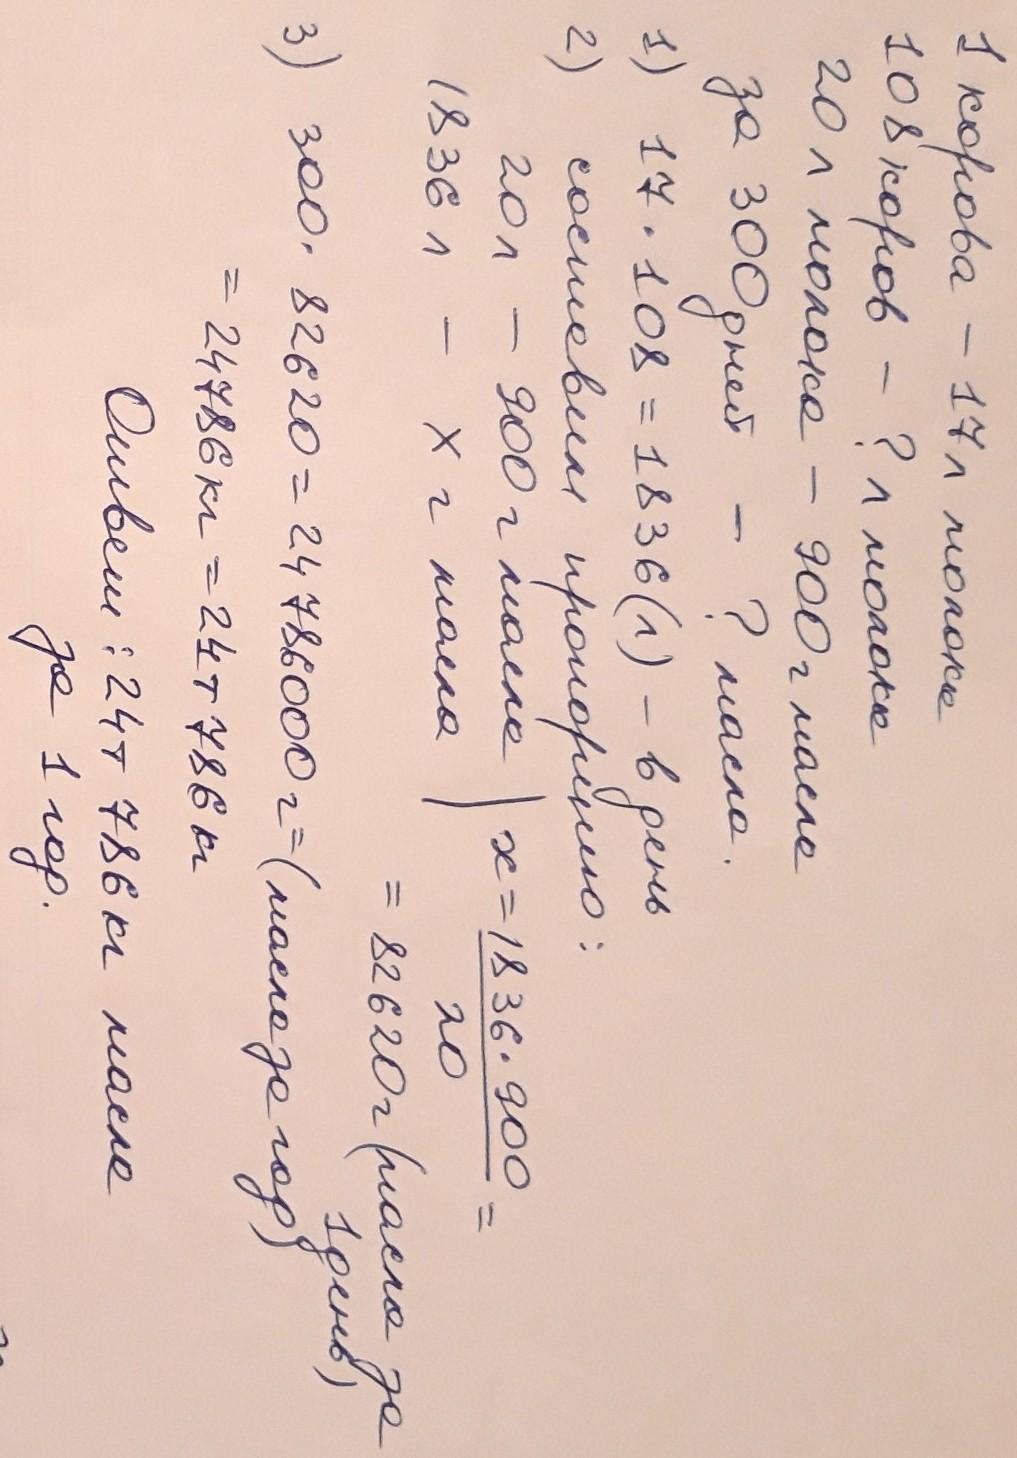 1 корова – 17 л молока
108 коров – ? л молока
20 л молока – 900 г масла
за 300 дней – ? масла.
1) 17 · 108 = 1836 (л) – в день
2) составим пропорцию:
20 л – 900 г масла | x = 1836 · 900 / 20 =
1836 л – x г масла
= 82620 г (масла за 1 день)
3) 300 · 82620 = 24786000 г = (масла за год)
= 24786 кг = 24 т 786 кг
Ответ: 24 т 786 кг масла
за 1 год.